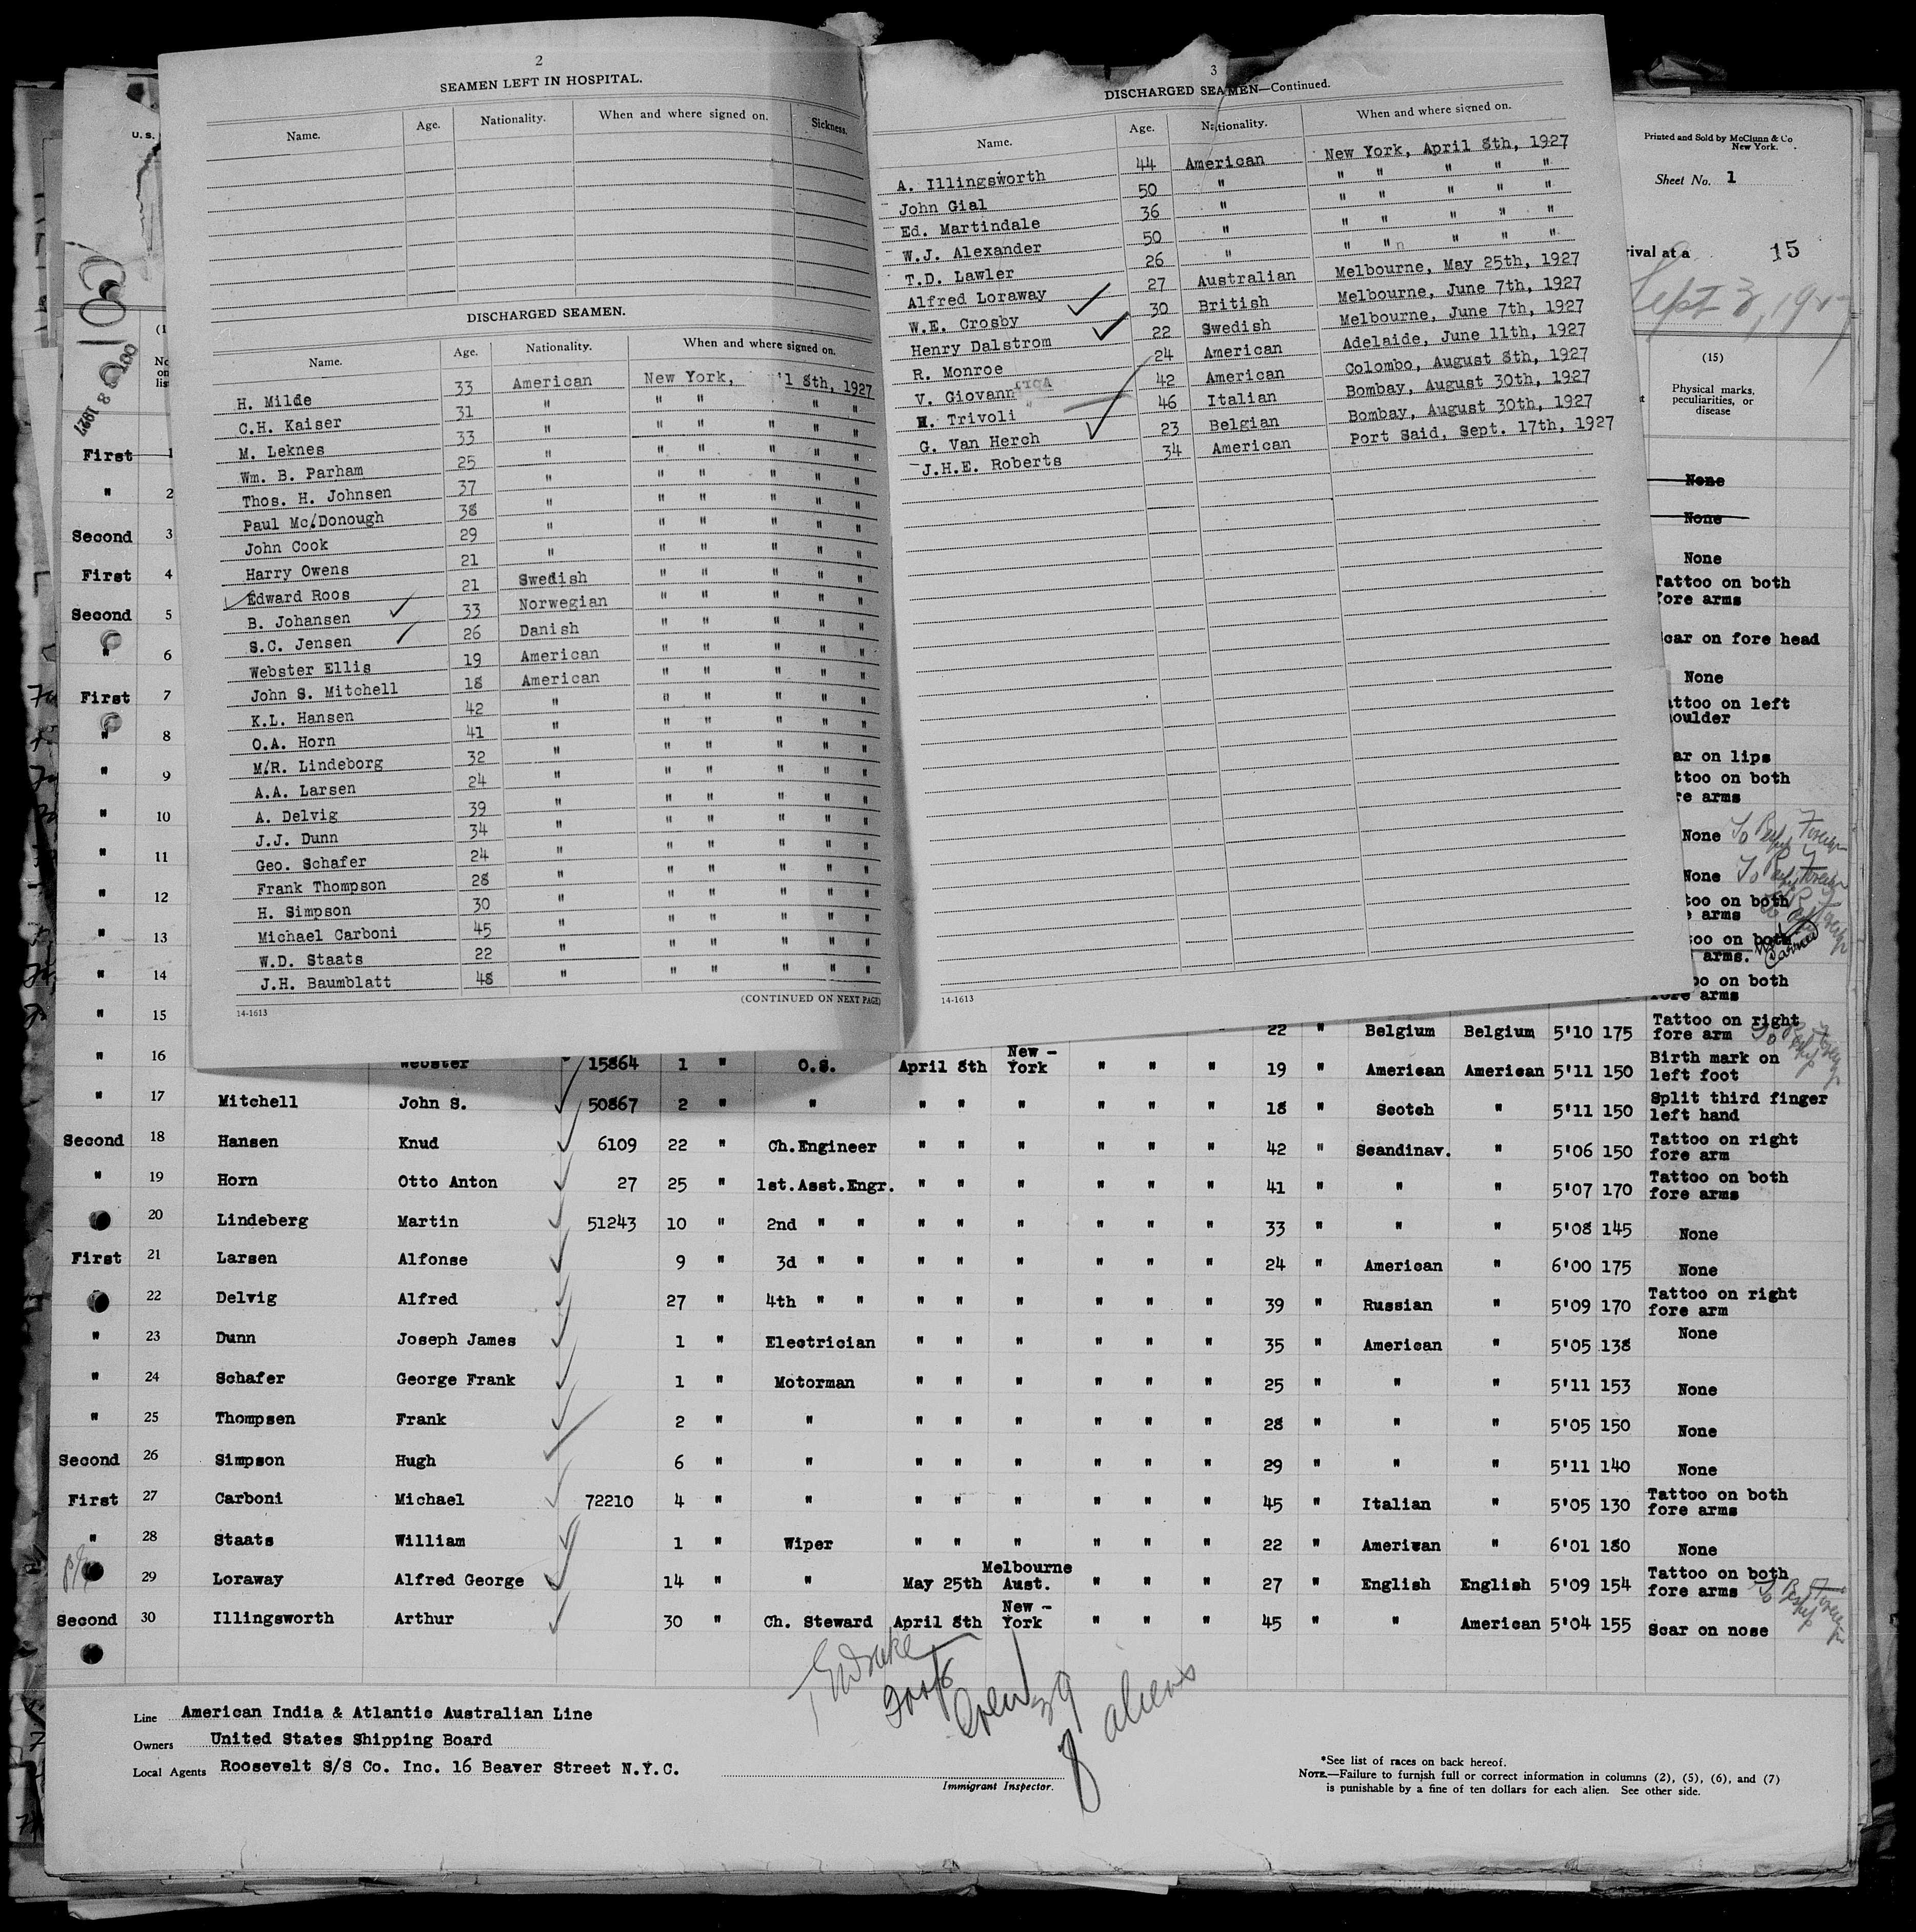 2
SEAMEN LEFT IN HOSPITAL.
Name. Age. Nationality. When and where signed on. Sickness.
DISCHARGED SEAMEN.
Name. Age. Nationality. When and where signed on.
H. Milde 33 American New York, 'l 8th, 1927
C.H. Kaiser 31 " " " " "
M. Leknes 33 " " " " " "
Wm. B. Parham 25 " " " " " "
Thos. H. Johnsen 37 " " " " " "
Paul Mc.Donough 38 " " " " " "
John Cook 29 " " " " " "
Harry Owens 21 " " " " " "
Edward Roos 21 Swedish " " " " "
B. Johansen 33 Norwegian " " " " "
S.C. Jensen 26 Danish " " " " "
Webster Ellis 19 American " " " " "
John S. Mitchell 18 American " " " " "
K.L. Hansen 42 " " " " " "
O.A. Horn 41 " " " " " "
M/R. Lindeborg 32 " " " " " "
A.A. Larsen 24 " " " " " "
A. Delvig 39 " " " " " "
J.J. Dunn 34 " " " " " "
Geo. Schafer 24 " " " " " "
Frank Thompson 28 " " " " " "
H. Simpson 30 " " " " " "
Michael Carboni 45 " " " " " "
W.D. Staats 22 " " " " " "
J.H. Baumblatt 48 " " " " " "
(CONTINUED ON NEXT PAGE)
14-1613
3
DISCHARGED SEAMEN—Continued.
Name. Age. Nationality. When and where signed on.
A. Illingsworth 44 American New York, April 8th, 1927
John Gial 50 " " " " " "
Ed. Martindale 36 " " " " " "
W.J. Alexander 50 " " " " " "
T.D. Lawler 26 " " " " " "
Alfred Loraway 27 Australian Melbourne, May 25th, 1927
W.E. Crosby 30 British Melbourne, June 7th, 1927
Henry Dalstrom 22 Swedish Melbourne, June 7th, 1927
R. Monroe 24 American Adelaide, June 11th, 1927
V. Giovann 42 American Colombo, August 8th, 1927
M. Trivoli 46 Italian Bombay, August 30th, 1927
G. Van Herch 23 Belgian Bombay, August 30th, 1927
J.H.E. Roberts 34 American Port Said, Sept. 17th, 1927
14-1613
U. S.
Printed and Sold by McClunn & Co
New York.
Sheet No. 1
rival at a 15
Sept 3, 19
(15)
Physical marks,
peculiarities, or
disease
OCT 8 1927
No
on
list
First 1 None
" 2 None
Second 3 None
First 4 Tattoo on both
fore arms
Second 5 car on fore head
" 6 None
First 7 attoo on left
oulder
" 8 ar on lips
" 9 ttoo on both
re arms
" 10 None To Reship Foreign
" 11 None To Reship Foreign
" 12 too on both
e arms
" 13 too on both
arms.
" 14 oo on both
fore arms
" 15 22 " Belgium Belgium 5'10 175 Tattoo on right
fore arm To Reship Foreign
" 16 Webster 15864 1 " O.S. April 8th New - York " " " 19 " American American 5'11 150 Birth mark on
left foot
" 17 Mitchell John S. 50867 2 " " " " " " " " 18 " Scotch " 5'11 150 Split third finger
left hand
Second 18 Hansen Knud 6109 22 " Ch.Engineer " " " " " " 42 " Scandinav. " 5'06 150 Tattoo on right
fore arm
" 19 Horn Otto Anton 27 25 " 1st.Asst.Engr. " " " " " " 41 " " " 5'07 170 Tattoo on both
fore arms
20 Lindeberg Martin 51243 10 " 2nd " " " " " " " " 33 " " " 5'08 145 None
First 21 Larsen Alfonse 9 " 3d " " " " " " " " 24 " American " 6'00 175 None
22 Delvig Alfred 27 " 4th " " " " " " " " 39 " Russian " 5'09 170 Tattoo on right
fore arm
" 23 Dunn Joseph James 1 " Electrician " " " " " " 35 " American " 5'05 138 None
" 24 Schafer George Frank 1 " Motorman " " " " " " 25 " " " 5'11 153 None
" 25 Thompsen Frank 2 " " " " " " " " 28 " " " 5'05 150 None
Second 26 Simpson Hugh 6 " " " " " " " " 29 " " " 5'11 140 None
First 27 Carboni Michael 72210 4 " " " " " " " " 45 " Italian " 5'05 130 Tattoo on both
fore arms
" 28 Staats William 1 " Wiper " " " " " " 22 " Ameriwan " 6'01 180 None
29 Loraway Alfred George 14 " " May 25th Melbourne Aust. " " " 27 " English English 5'09 154 Tattoo on both
fore arms To Reship Foreign
Second 30 Illingsworth Arthur 30 " Ch. Steward April 8th New - York " " " 45 " " American 5'04 155 Scar on nose
Crew 39
8 aliens
Line American India & Atlantic Australian Line
Owners United States Shipping Board
Local Agents Roosevelt S/S Co. Inc. 16 Beaver Street N.Y.C.
Immigrant Inspector.
*See list of races on back hereof.
NOTE.—Failure to furnish full or correct information in columns (2), (5), (6), and (7)
is punishable by a fine of ten dollars for each alien. See other side.